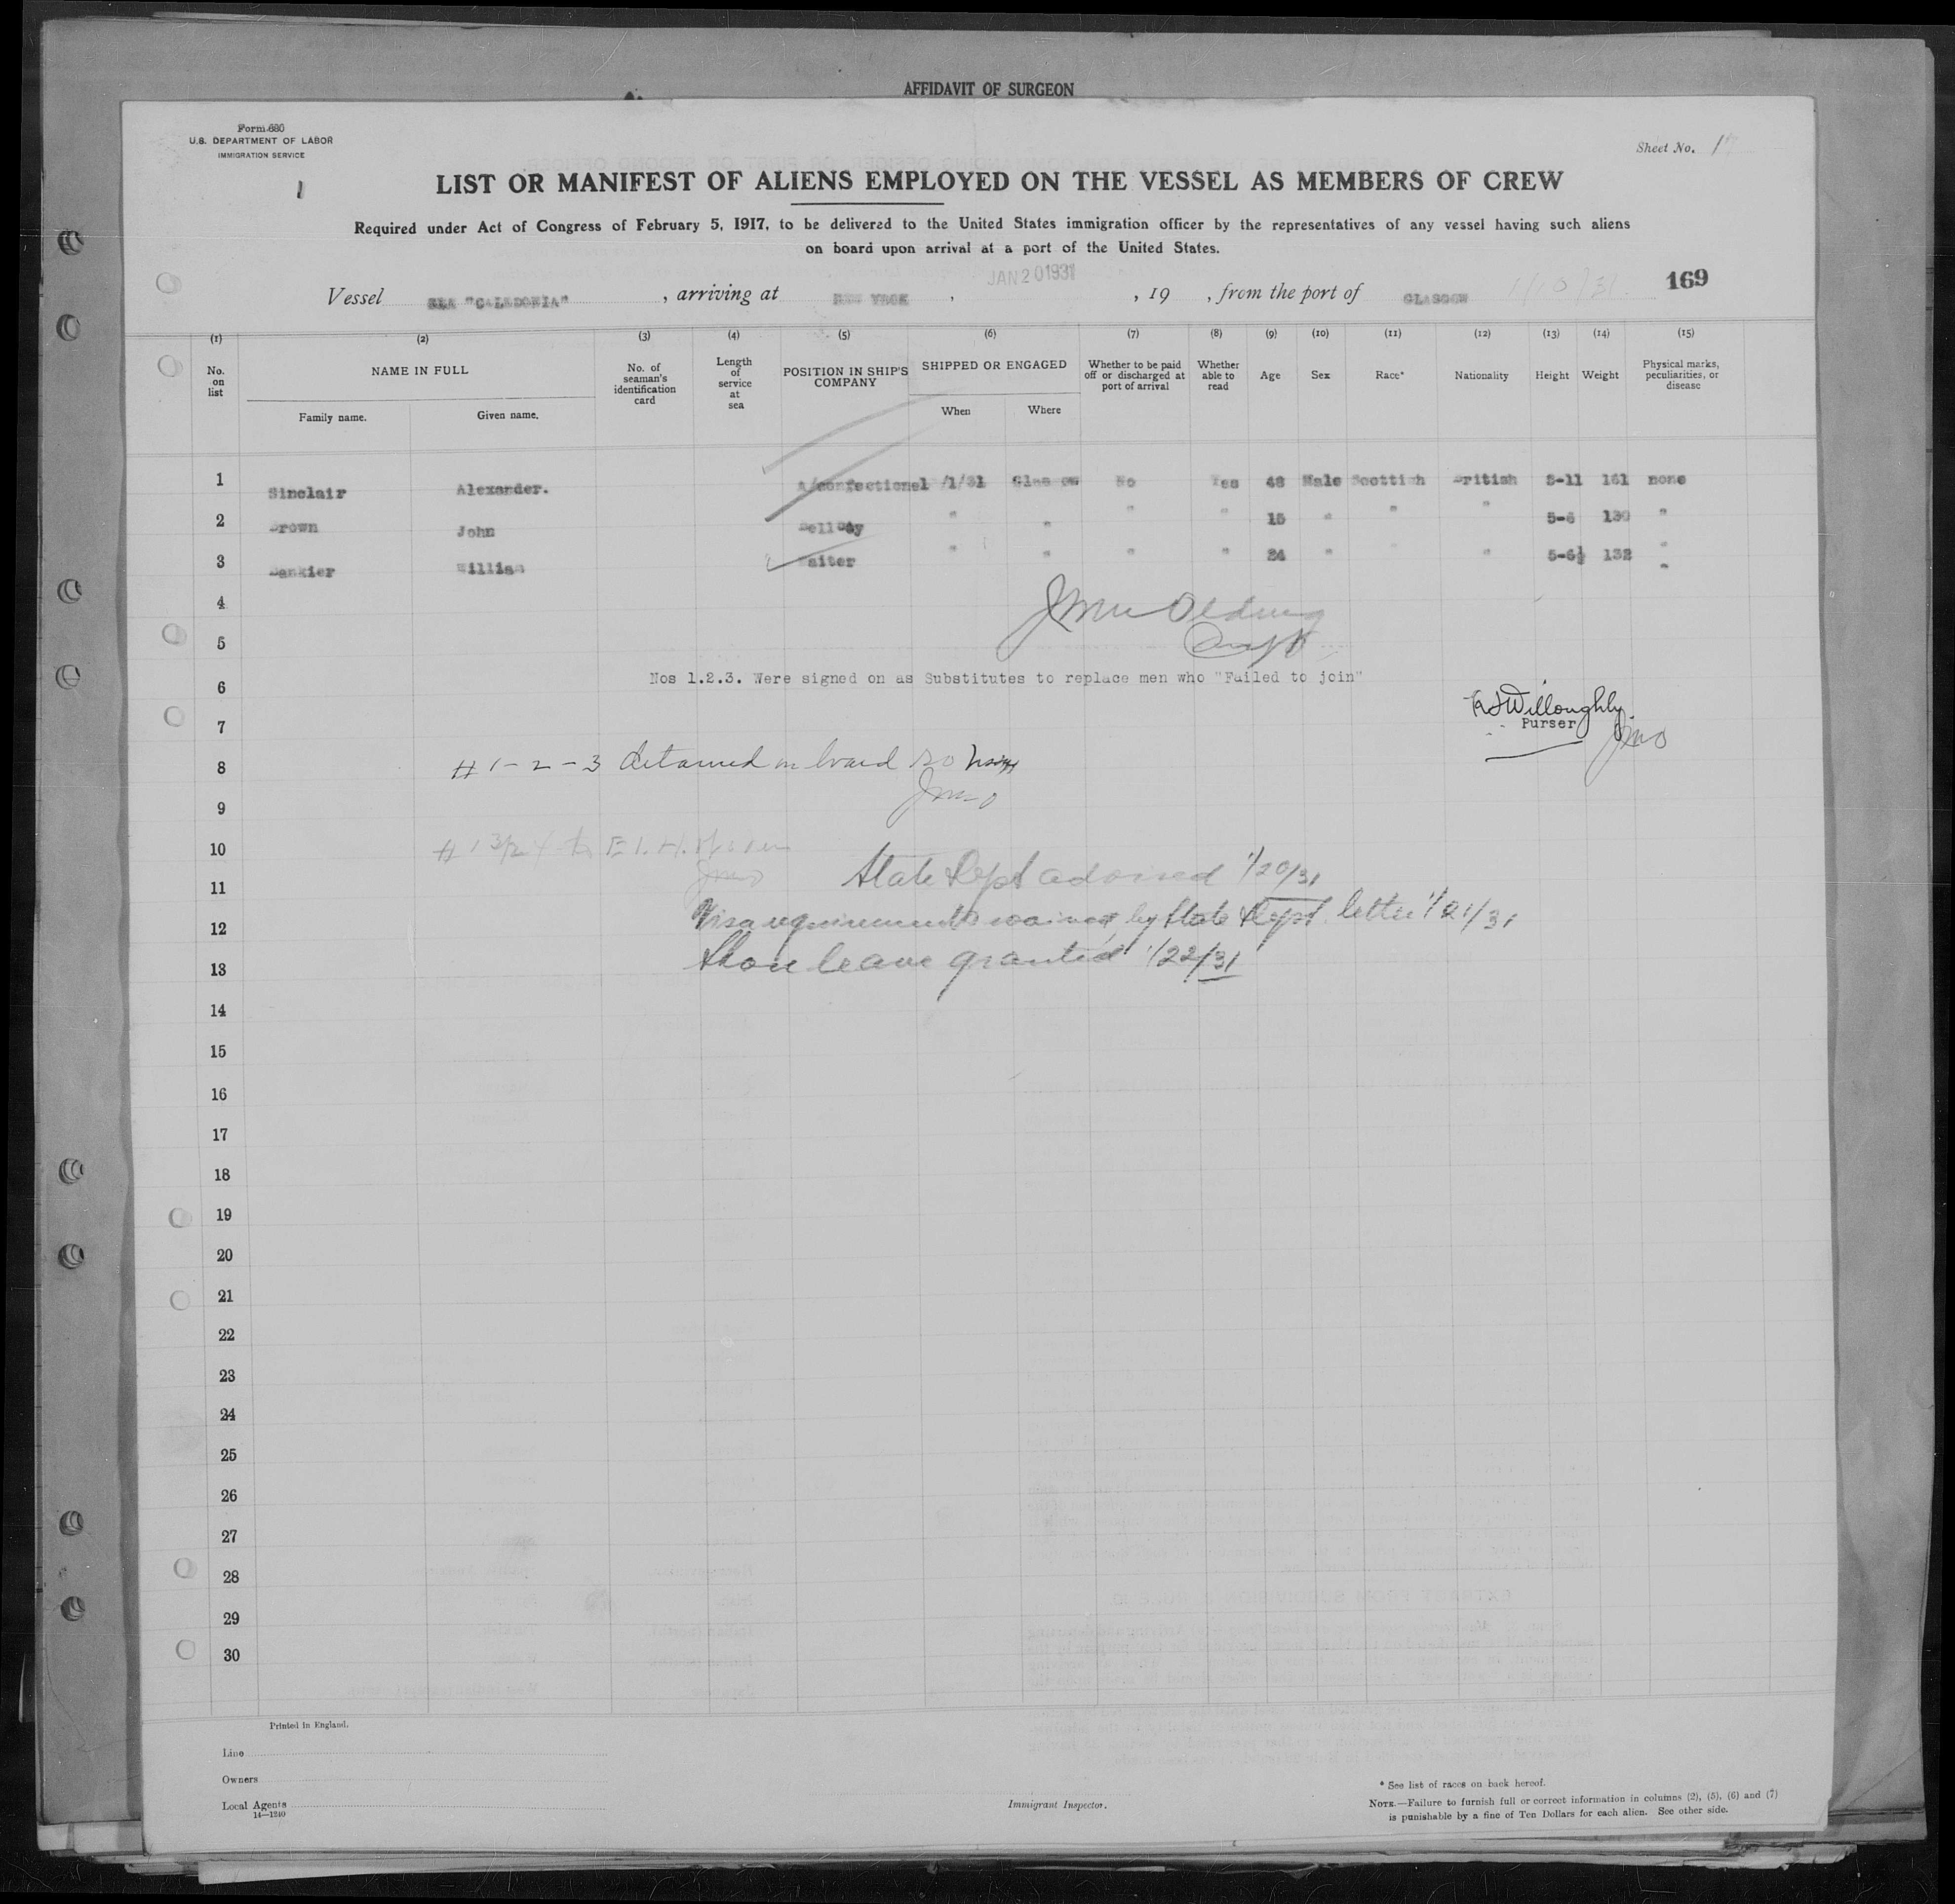 AFFIDAVIT OF SURGEON
Form 680
U.S. DEPARTMENT OF LABOR
IMMIGRATION SERVICE
Sheet No. 1
1
LIST OR MANIFEST OF ALIENS EMPLOYED ON THE VESSEL AS MEMBERS OF CREW
Required under Act of Congress of February 5, 1917, to be delivered to the United States immigration officer by the representatives of any vessel having such aliens
on board upon arrival at a port of the United States.
Vessel "CALEDONIA", arriving at NEW YORK, JAN 20 1931, 19 , from the port of GLASGOW 169
(1) (2) (3) (4) (5) (6) (7) (8) (9) (10) (11) (12) (13) (14) (15)
No. on list NAME IN FULL Family name. Given name. No. of seaman's identification card Length of service at sea POSITION IN SHIP'S COMPANY SHIPPED OR ENGAGED When Where Whether to be paid off or discharged at port of arrival Whether able to read Age Sex Race* Nationality Height Weight Physical marks, peculiarities, or disease
1 Sinclair Alexander. A/confectionel /1/31 Glasgow No Yes 48 Male Scottish British 5-11 161 none
2 Brown John Bell Boy " " " " 15 " " " 5-6 130 "
3 Bankier William Waiter " " " " 24 " " " 5-6½ 132 "
4
5
6 Nos 1.2.3. Were signed on as Substitutes to replace men who "Failed to join"
Willoughby
7 Purser
8 # 1-2-3 detained on board
9
10
State Dept advised 1/20/31
11
12 Visa requirements waived by State Dept. letter 1/21/31
13 Shore leave granted 1/22/31
14
15
16
17
18
19
20
21
22
23
24
25
26
27
28
29
30
Printed in England.
Line
Owners
Local Agents
14—1240
Immigrant Inspector.
* See list of races on back hereof.
NOTE.—Failure to furnish full or correct information in columns (2), (5), (6) and (7)
is punishable by a fine of Ten Dollars for each alien. See other side.